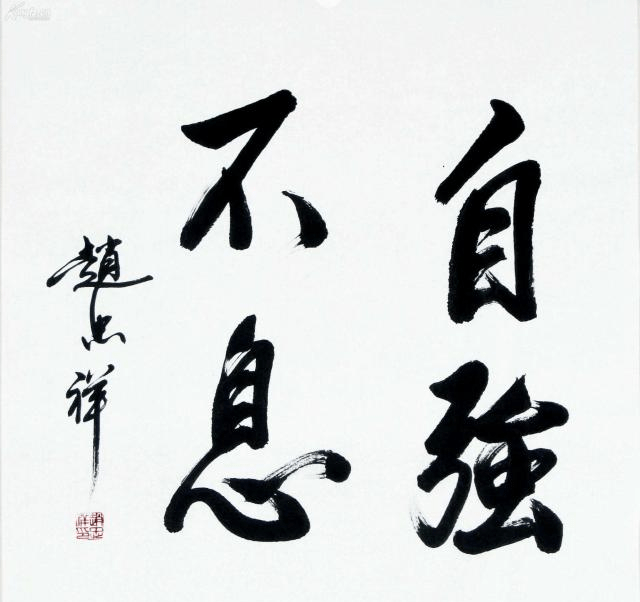 自強
不息
趙忠祥